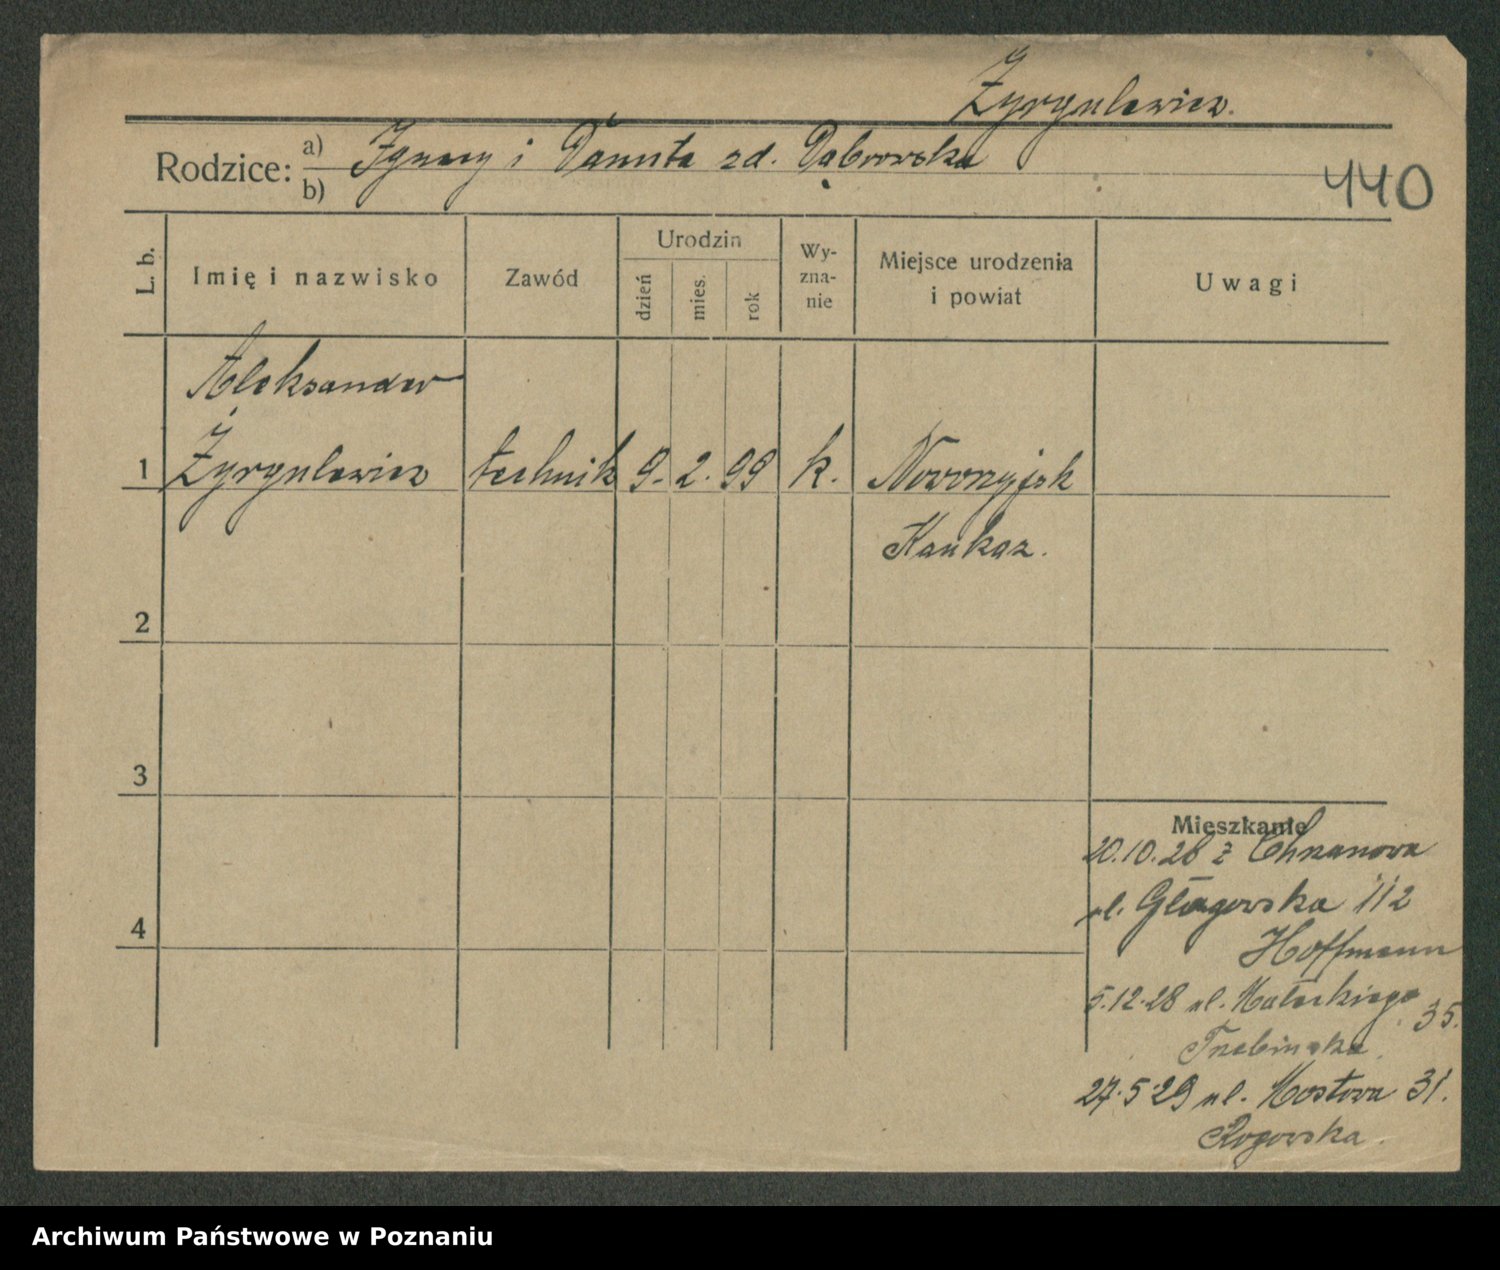 Żyrgulewicz.
Rodzice: a) Ignacy i Danuta zd. Dąbrowska
b)
440
L. b.
Imię i nazwisko
Zawód
Urodzin
dzień
mies.
rok
Wy-
zna-
nie
Miejsce urodzenia
i powiat
Uwagi
Aleksander
1 Żyrgulewicz technik 9. 2. 99 k.
Kaukaz.
2
3
4
Mieszkanie
20.10.28 z Chrzanowa
ul. Głogowska 112
Hoffmann
5.12.28 ul. Małeckiego 35.
27.5.29 ul. Mostowa 31.
Rogowska.
Archiwum Państwowe w Poznaniu